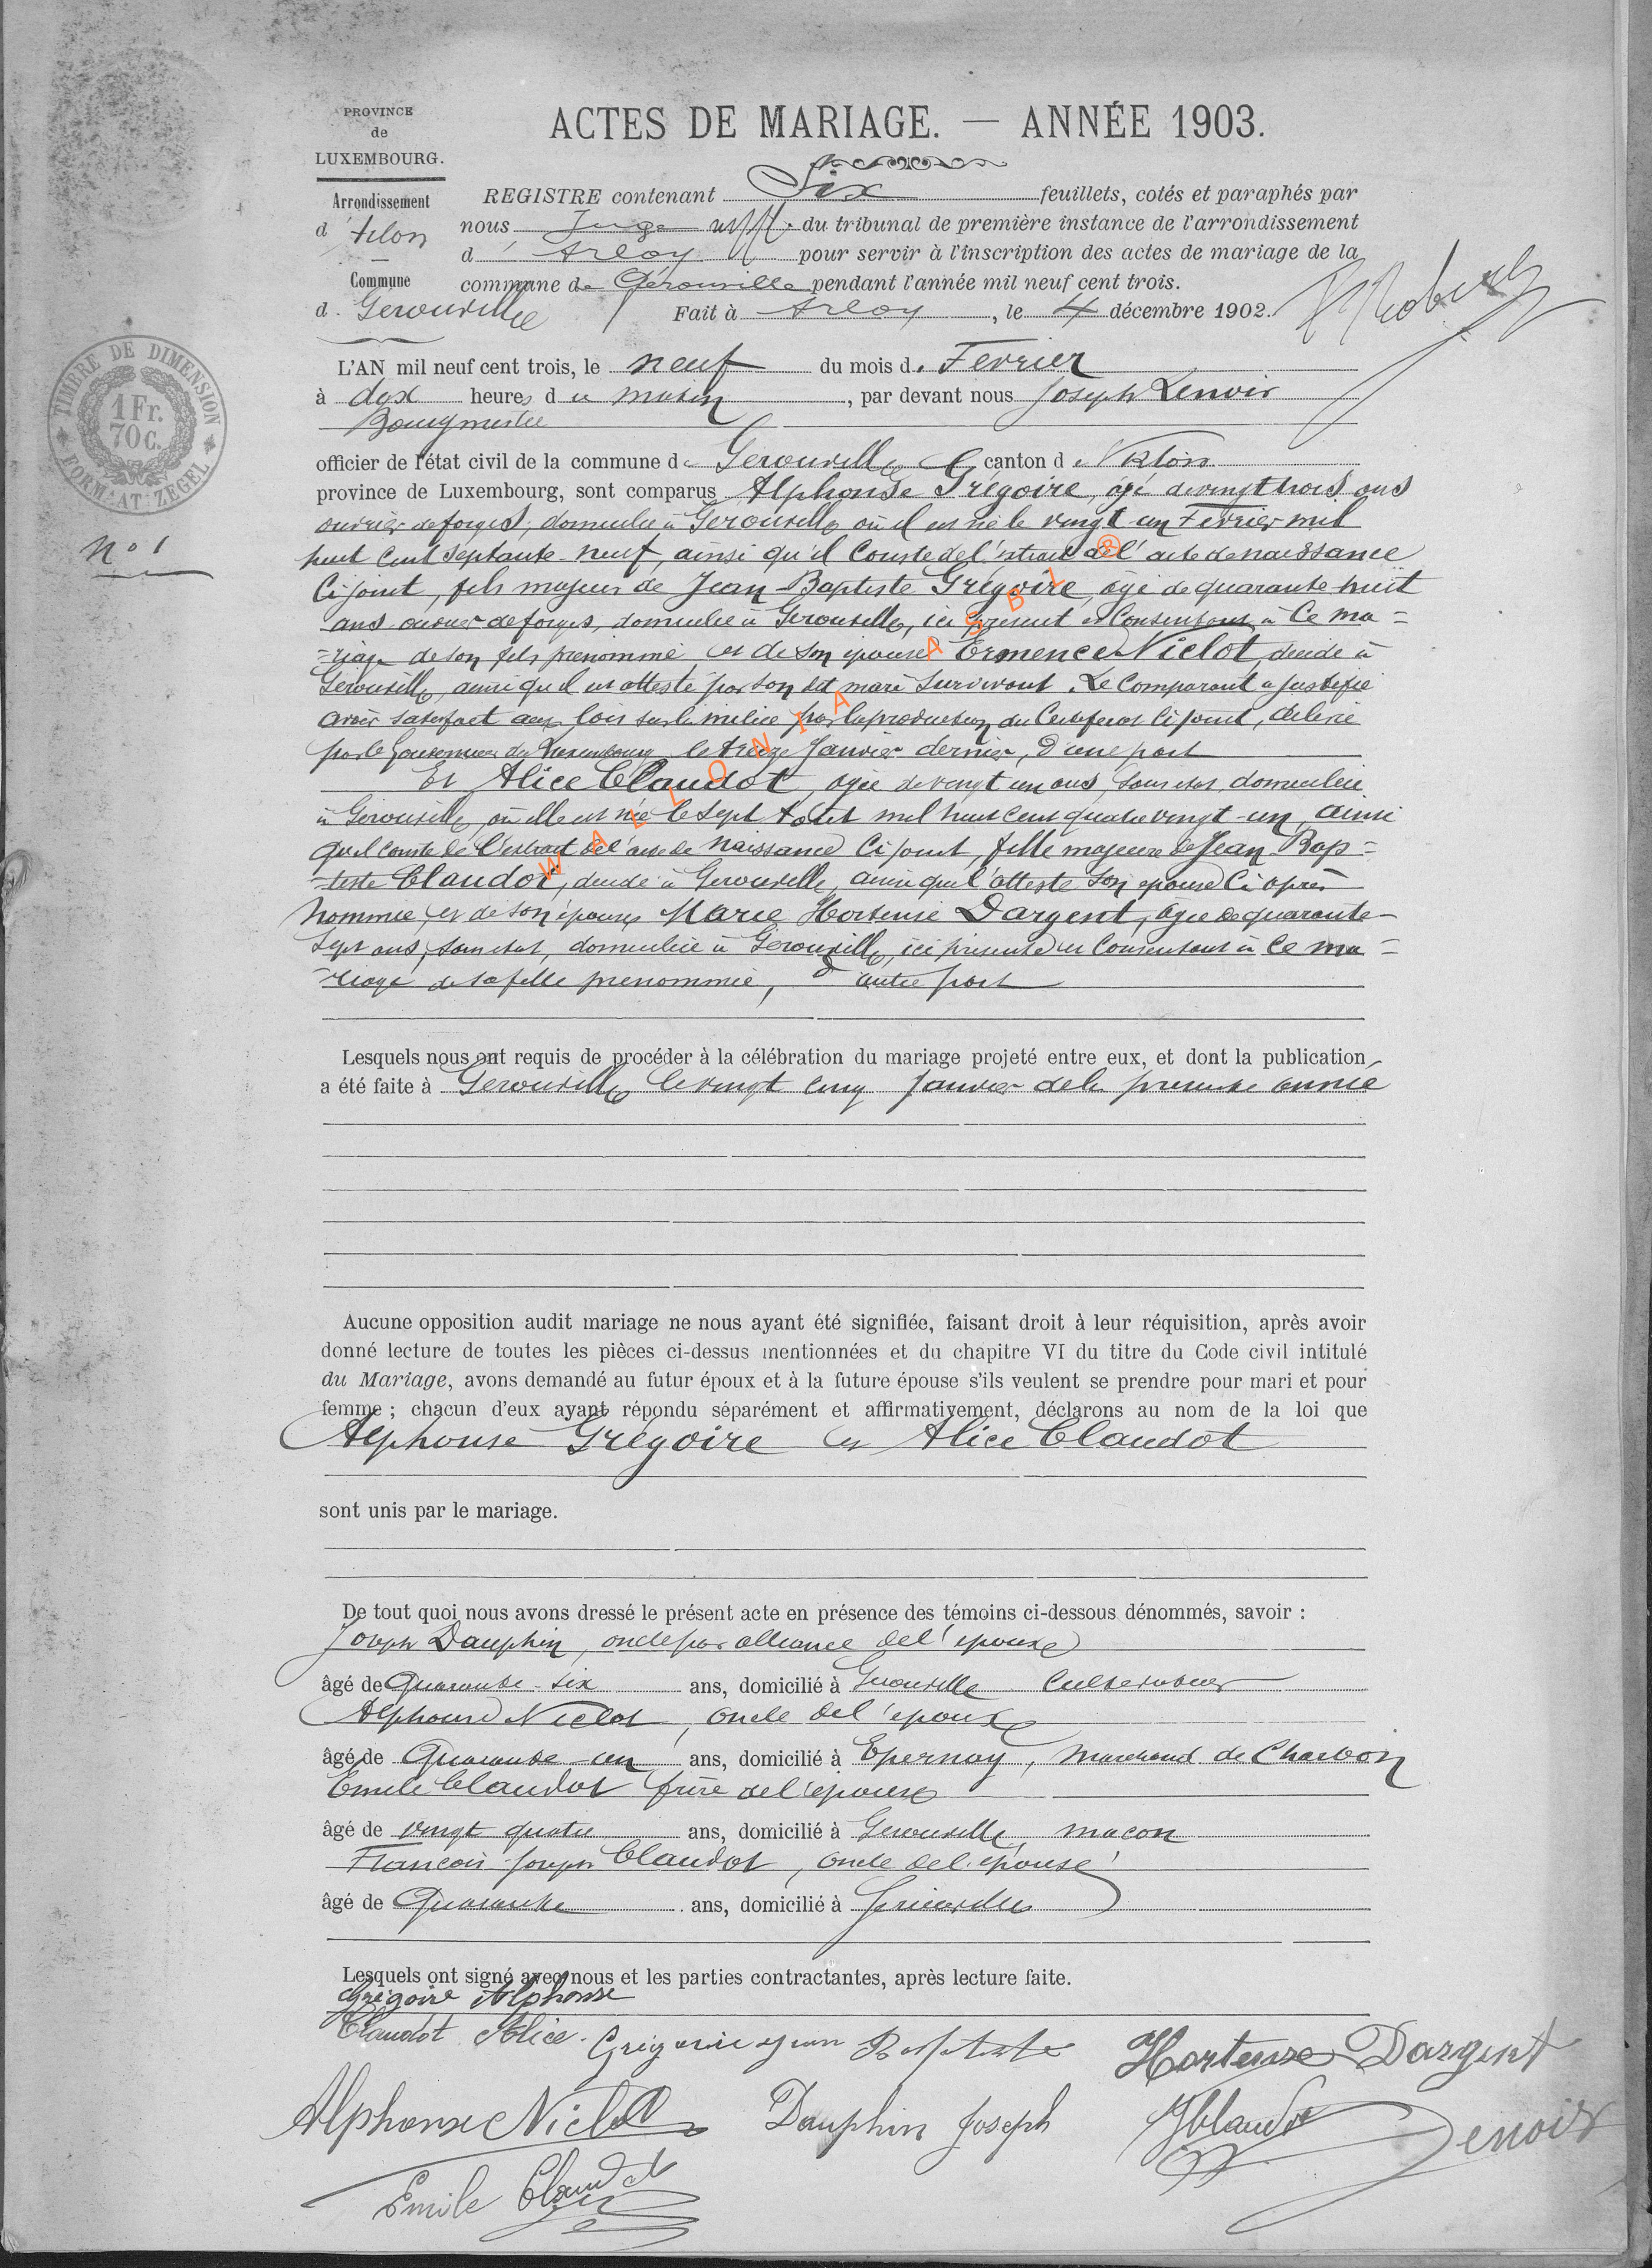 PROVINCE
de
LUXEMBOURG.
Arrondissement
d'Arlon
Commune
d. Gerouville
ACTES DE MARIAGE. — ANNÉE 1903.
REGISTRE contenant Six feuillets, cotés et paraphés par
nous Juge du tribunal de première instance de l'arrondissement
d'Arlon pour servir à l'inscription des actes de mariage de la
commune de Gérouville pendant l'année mil neuf cent trois.
Fait à Arlon, le 4 décembre 1902.
TIMBRE DE DIMENSION
1 Fr.
70 C.
FORMAT ZEGEL
No 1
L'AN mil neuf cent trois, le neuf du mois d. Fevrier
à dix heures du matin, par devant nous Joseph Lenoir
Bourgmestre
officier de l'état civil de la commune de Gerouville canton de Virton
province de Luxembourg, sont comparus Alphonse Grégoire, âgé de vingt trois ans
ouvrier de forges, domicilié à Gerouville où il est né le vingt un Fevrier mil
huit cent septante-neuf, ainsi qu'il conste de l'extrait de l'acte de naissance
Ci joint, fils majeur de Jean-Baptiste Grégoire, âgé de quarante huit
ans ouvrier de forges, domicilié à Gerouville, ici présent et Consentant à Ce ma=
=riage de son fils prénommé, et de son épouse Ermence Niclot, décédé à
Gerouville, ainsi qu'il est attesté par son dit mari survivant. Le Comparant a justifié
avoir satisfait aux lois sur la milice par la production du Certificat Ci joint, délivré
par le Gouverneur du Luxembourg le treize Janvier dernier, D'une part
Et Alice Claudot, agée de vingt un ans, sans état, domiciliée
à Gerouville, où elle est née le sept Août mil huit cent quatre vingt-un, ainsi
qu'il conste de l'extrait de l'acte de naissance Ci joint, fille majeure de Jean-Bap=
=tiste Claudot, décédé à Gerouville, ainsi que l'atteste son épouse Ci après
nommée, et de son épouse Marie Hortense Dargent, âgée de quarante-
Sept ans, sans état, domiciliée à Gerouville, ici présente et Consentant à Ce ma=
=riage de sa fille prénommée, d'autre part
WALLONIA ASBL ®
Lesquels nous ont requis de procéder à la célébration du mariage projeté entre eux, et dont la publication
a été faite à Gerouville le vingt cinq Janvier de la présente année
Aucune opposition audit mariage ne nous ayant été signifiée, faisant droit à leur réquisition, après avoir
donné lecture de toutes les pièces ci-dessus mentionnées et du chapitre VI du titre du Code civil intitulé
du Mariage, avons demandé au futur époux et à la future épouse s'ils veulent se prendre pour mari et pour
femme ; chacun d'eux ayant répondu séparément et affirmativement, déclarons au nom de la loi que
Alphonse Grégoire et Alice Claudot
sont unis par le mariage.
De tout quoi nous avons dressé le présent acte en présence des témoins ci-dessous dénommés, savoir :
Joseph Dauphin, oncle par alliance de l'épouse
âgé de Quarante-six ans, domicilié à Gerouville Cultivateur
Alphonse Niclot, oncle de l'époux
âgé de Quarante-un ans, domicilié à Epernay, Marchand de Charbon
Emile Claudot frère de l'épouse
âgé de vingt quatre ans, domicilié à Gerouville, macon
François-Joseph Claudot, oncle de l'épouse
âgé de Quarante ans, domicilié à
Lesquels ont signé avec nous et les parties contractantes, après lecture faite.
Grégoire Alphonse
Claudot Alice. Grégoire Jean Baptiste Hortense Dargent
Alphonse Niclot Dauphin Joseph JClaudot Lenoir
Emile Claudot